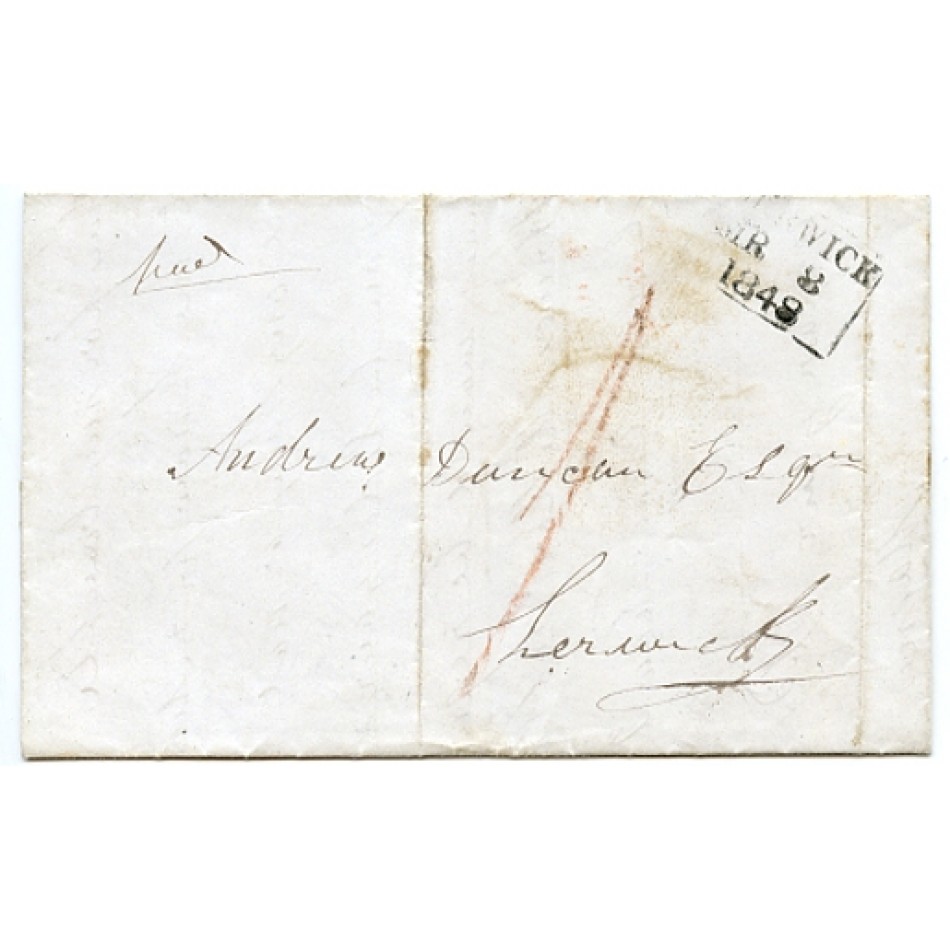 WICK
MR 8
1848
Andrew Duncan Esqr
Lerwick